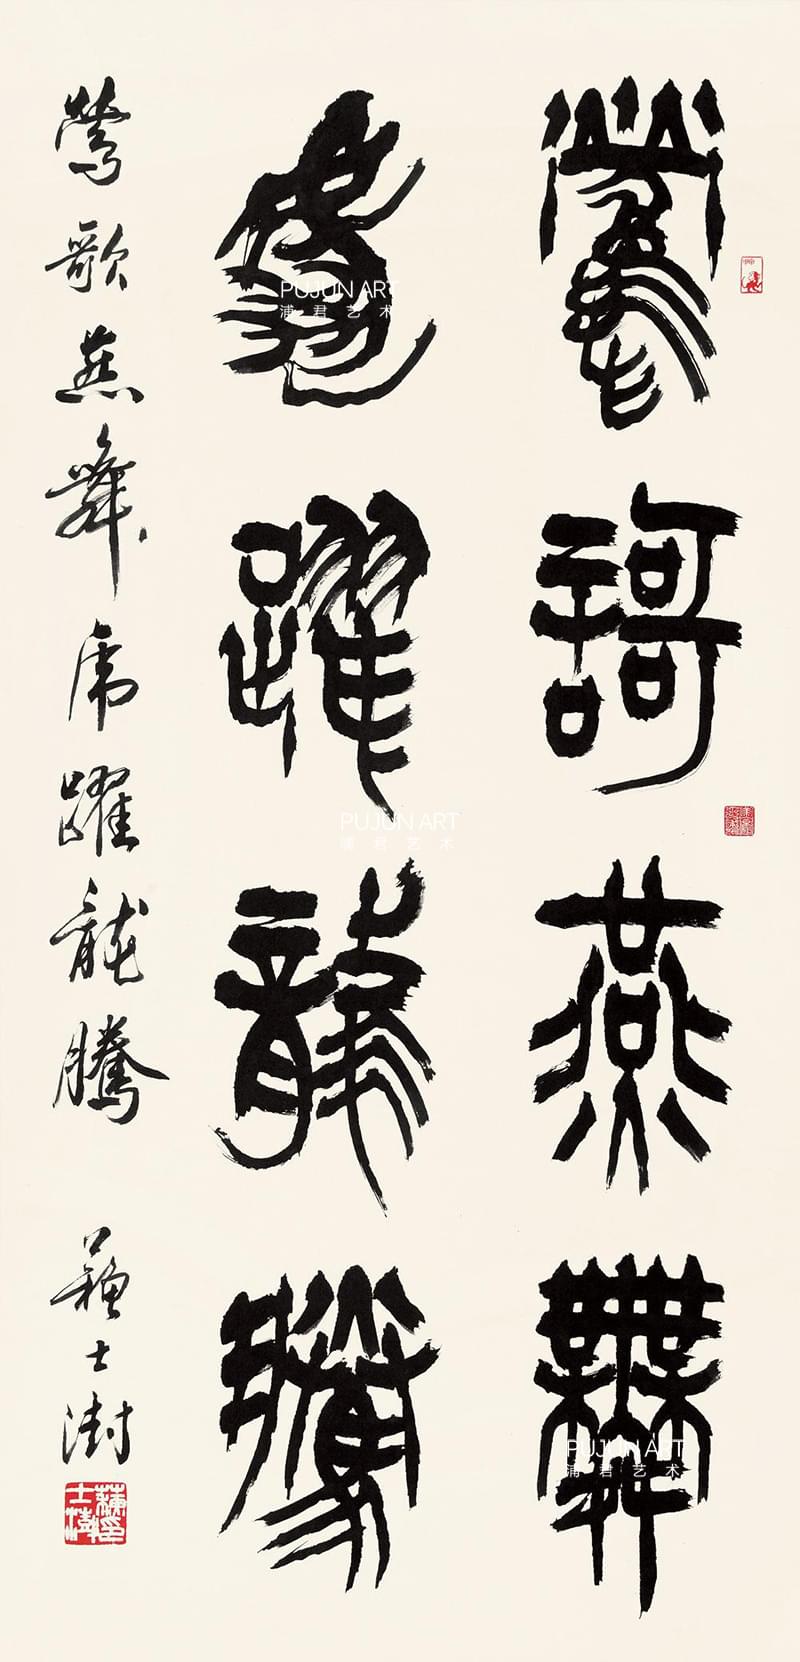 鶯謌燕舞
虎躍龍騰
鶯歌燕舞虎躍龍騰 蘇士澍
蘇士澍印
PUJUN ART
浦君艺术
PUJUN ART
浦君艺术
PUJUN ART
浦君艺术